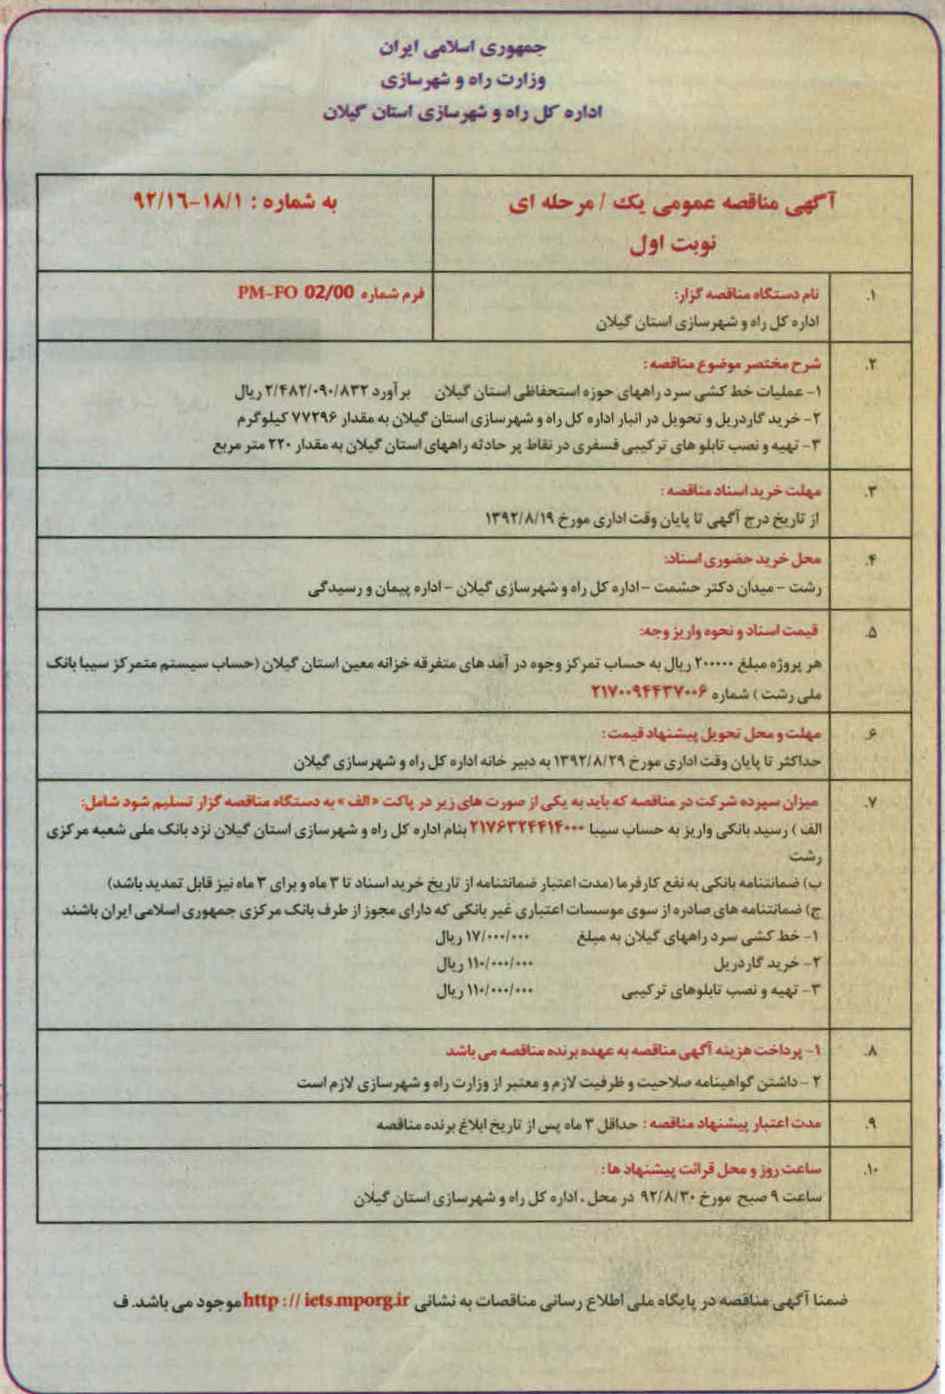 جمهوری اسلامی ایران
وزارت راه و شهرسازی
اداره کل راه و شهرسازی استان گیلان
آگهی مناقصه عمومی یک / مرحله ای
نوبت اول
به شماره : ۹۲/۱۶-۱۸/۱
۱. نام دستگاه مناقصه گزار:
اداره کل راه و شهرسازی استان گیلان
فرم شماره PM-FO 02/00
۲. شرح مختصر موضوع مناقصه :
۱- عملیات خط کشی سرد راههای حوزه استحفاظی استان گیلان برآورد ۲/۴۸۲/۰۹۰/۸۳۲ ریال
۲- خرید گاردریل و تحویل در انبار اداره کل راه و شهرسازی استان گیلان به مقدار ۷۷۲۹۶ کیلوگرم
۳- تهیه و نصب تابلو های ترکیبی فسفری در نقاط پر حادثه راههای استان گیلان به مقدار ۲۲۰ متر مربع
۳. مهلت خرید اسناد مناقصه :
از تاریخ درج آگهی تا پایان وقت اداری مورخ ۱۳۹۲/۸/۱۹
۴. محل خرید حضوری اسناد:
رشت - میدان دکتر حشمت - اداره کل راه و شهرسازی گیلان - اداره پیمان و رسیدگی
۵. قیمت اسناد و نحوه واریز وجه:
هر پروژه مبلغ ۲۰۰۰۰۰ ریال به حساب تمرکز وجوه در آمد های متفرقه خزانه معین استان گیلان (حساب سیستم متمرکز سیبا بانک
ملی رشت ) شماره ۲۱۷۰۰۹۴۴۳۷۰۰۶
۶. مهلت و محل تحویل پیشنهاد قیمت :
حداکثر تا پایان وقت اداری مورخ ۱۳۹۲/۸/۲۹ به دبیر خانه اداره کل راه و شهرسازی گیلان
۷. میزان سپرده شرکت در مناقصه که باید به یکی از صورت های زیر در پاکت «الف» به دستگاه مناقصه گزار تسلیم شود شامل:
الف ) رسید بانکی واریز به حساب سیبا ۲۱۷۶۳۲۴۴۱۴۰۰۰ بنام اداره کل راه و شهرسازی استان گیلان نزد بانک ملی شعبه مرکزی
رشت
ب) ضمانتنامه بانکی به نفع کارفرما (مدت اعتبار ضمانتنامه از تاریخ خرید اسناد تا ۳ ماه و برای ۳ ماه نیز قابل تمدید باشد)
ج) ضمانتنامه های صادره از سوی موسسات اعتباری غیر بانکی که دارای مجوز از طرف بانک مرکزی جمهوری اسلامی ایران باشند
۱- خط کشی سرد راههای گیلان به مبلغ ۱۷/۰۰۰/۰۰۰ ریال
۲- خرید گاردریل ۱۱۰/۰۰۰/۰۰۰ ریال
۳- تهیه و نصب تابلوهای ترکیبی ۱۱۰/۰۰۰/۰۰۰ ریال
۸. ۱- پرداخت هزینه آگهی مناقصه به عهده برنده مناقصه می باشد
۲ - داشتن گواهینامه صلاحیت و ظرفیت لازم و معتبر از وزارت راه و شهرسازی لازم است
۹. مدت اعتبار پیشنهاد مناقصه : حداقل ۳ ماه پس از تاریخ ابلاغ برنده مناقصه
۱۰. ساعت روز و محل قرائت پیشنهاد ها :
ساعت ۹ صبح مورخ ۹۲/۸/۳۰ در محل ، اداره کل راه و شهرسازی استان گیلان
ضمنا آگهی مناقصه در پایگاه ملی اطلاع رسانی مناقصات به نشانی http : // iets.mporg.ir موجود می باشد. ف